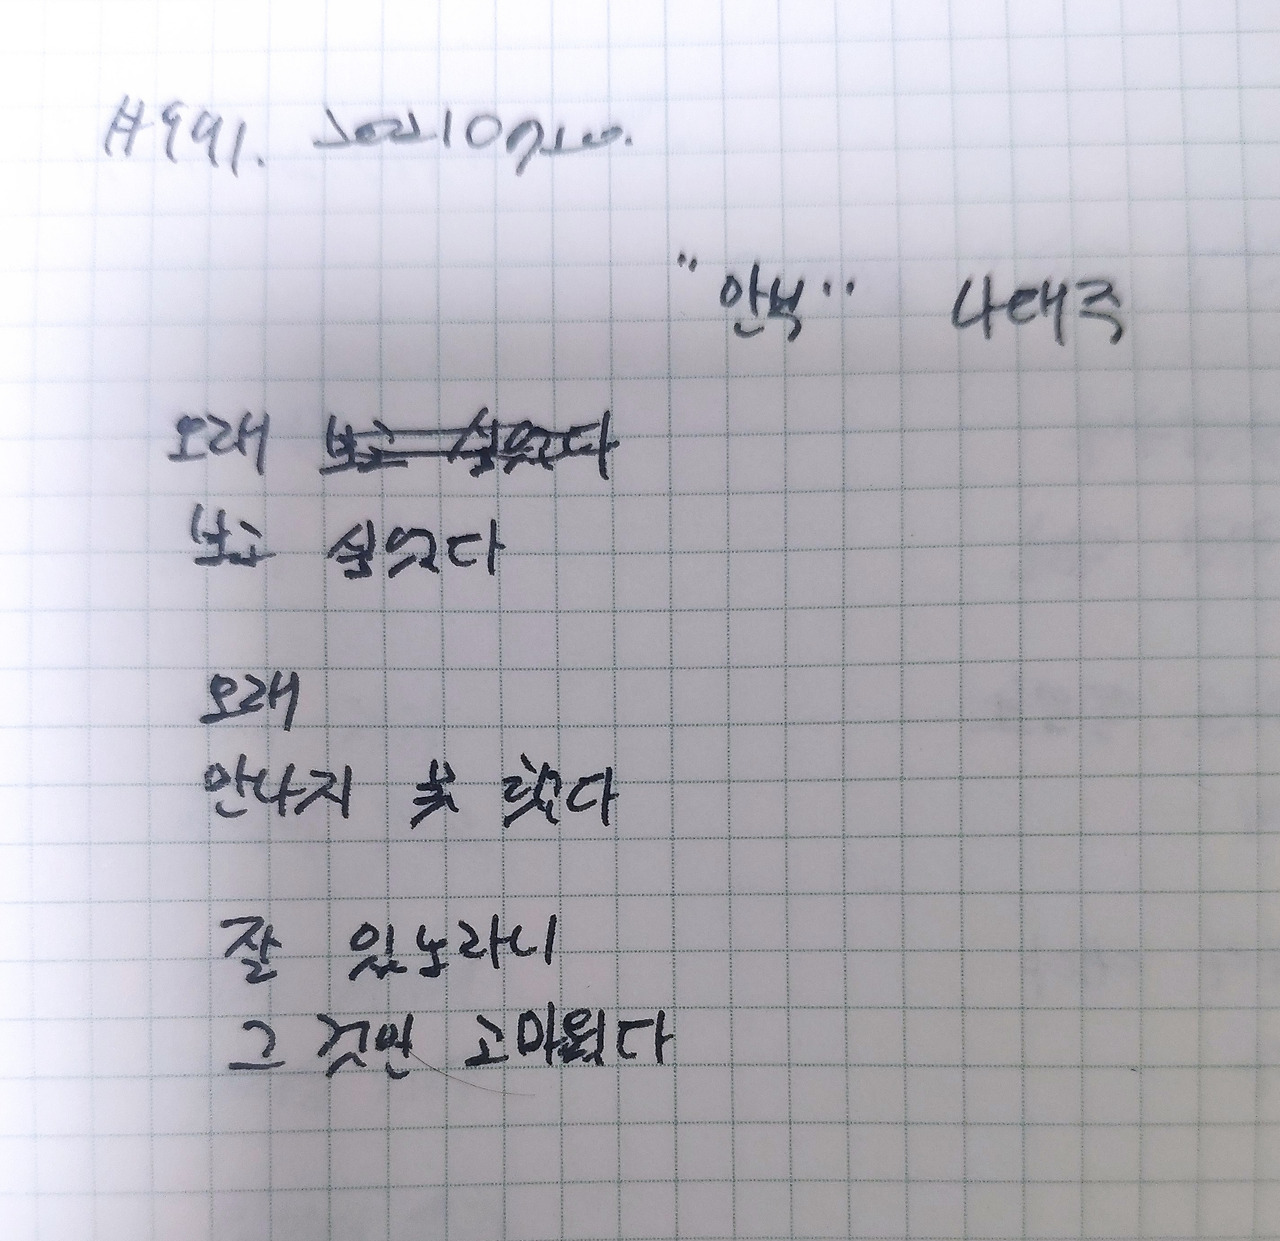 #991.
"안부" 나태주
오래 보고 싶었다
보고 싶었다
오래
만나지 못 했다
잘 있노라니
그 것만 고마웠다